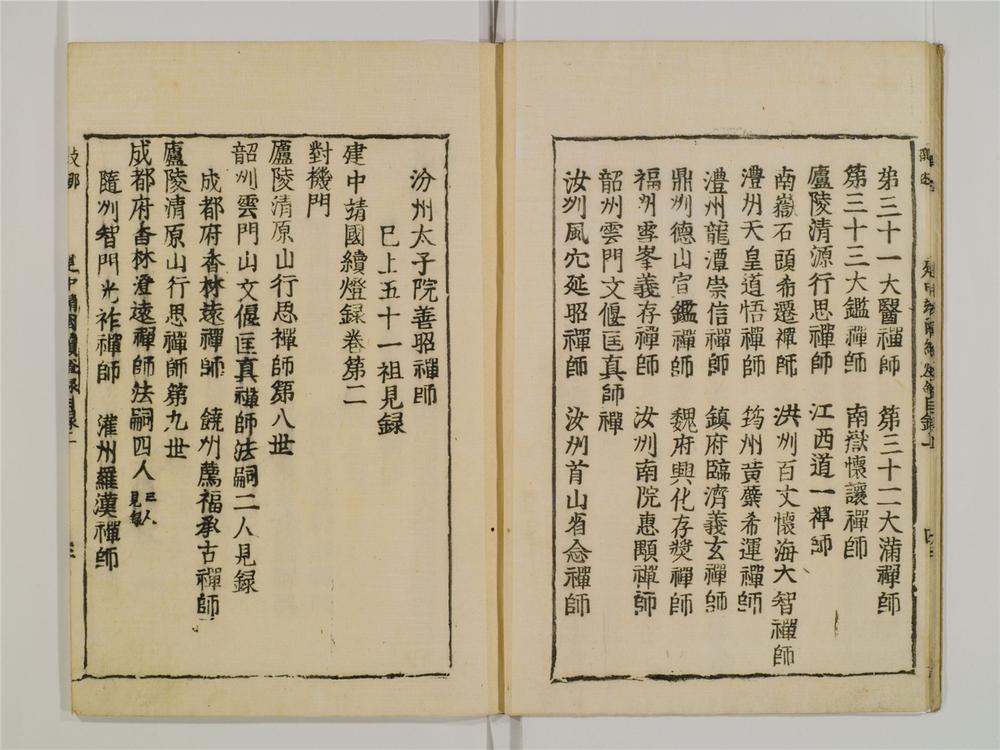 第三十一大醫禪師　第三十二大滿禪師
第三十三大鑑禪師　南嶽懷讓禪師
廬陵清源行思禪師　江西道一禪師
南嶽石頭希遷禪師　洪州百丈懷海大智禪師
澧州天皇道悟禪師　筠州黃蘗希運禪師
澧州龍潭崇信禪師　鎮府臨濟義玄禪師
鼎州德山宣鑑禪師　魏府興化存奬禪師
福州雪峯義存禪師　汝州南院惠顒禪師
韶州雲門文偃匡真師禪
汝州風穴延昭禪師　汝州首山省念禪師
汾州太子院善昭禪師
已上五十一祖見録
建中靖國續燈録卷第二
對機門
廬陵清原山行思禪師第八世
韶州雲門山文偃匡真禪師法嗣二人見録
成都府香林遠禪師　饒州薦福承古禪師
廬陵清原山行思禪師第九世
成都府香林澄遠禪師法嗣四人三人見録
隨州智門光祚禪師　灌州羅漢禪師